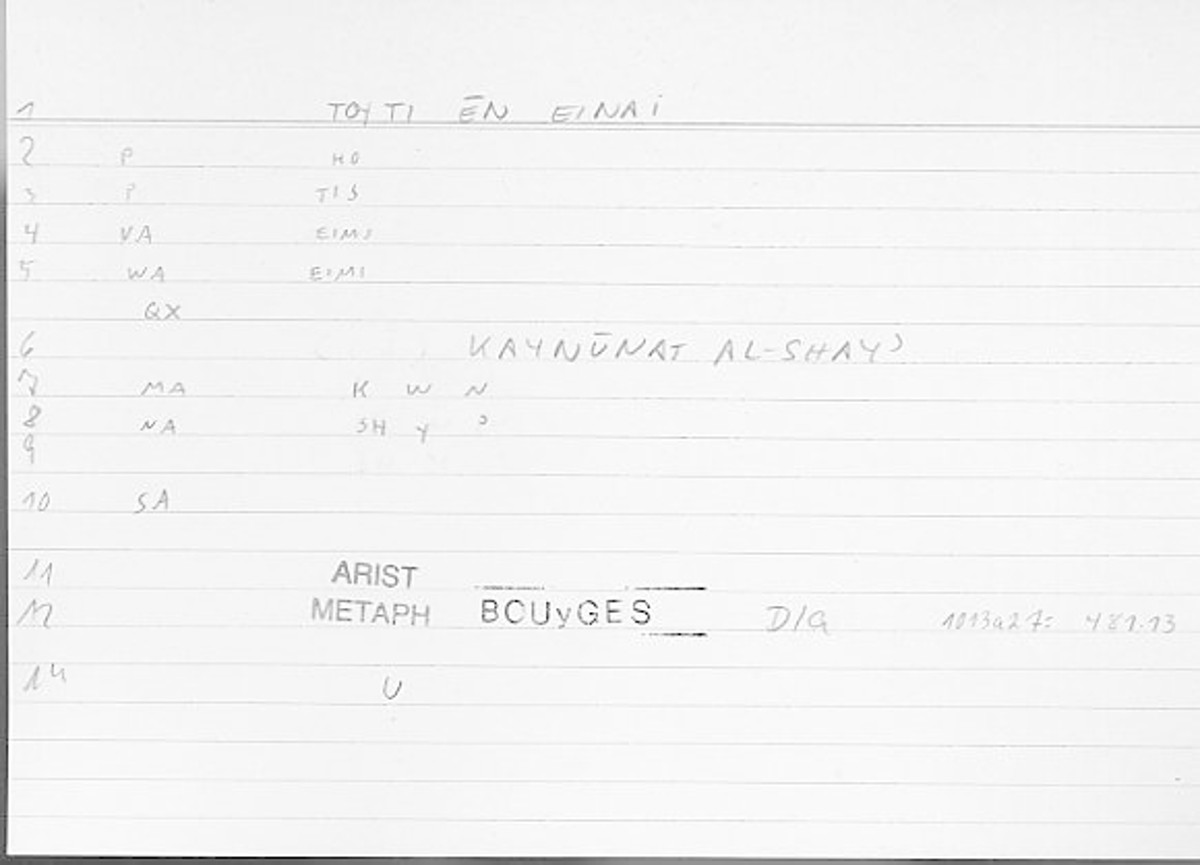 1 TOY TI ĒN EINAI
2 P HO
3 P TIS
4 VA EIMI
5 WA EIMI
QX
6 KAYNŪNAT AL-SHAYʾ
7 MA K W N
8 NA SH Y ʾ
9
10 SA
11 ARIST
12 METAPH BOUyGES D/G 1013a27: 481.13
14 U